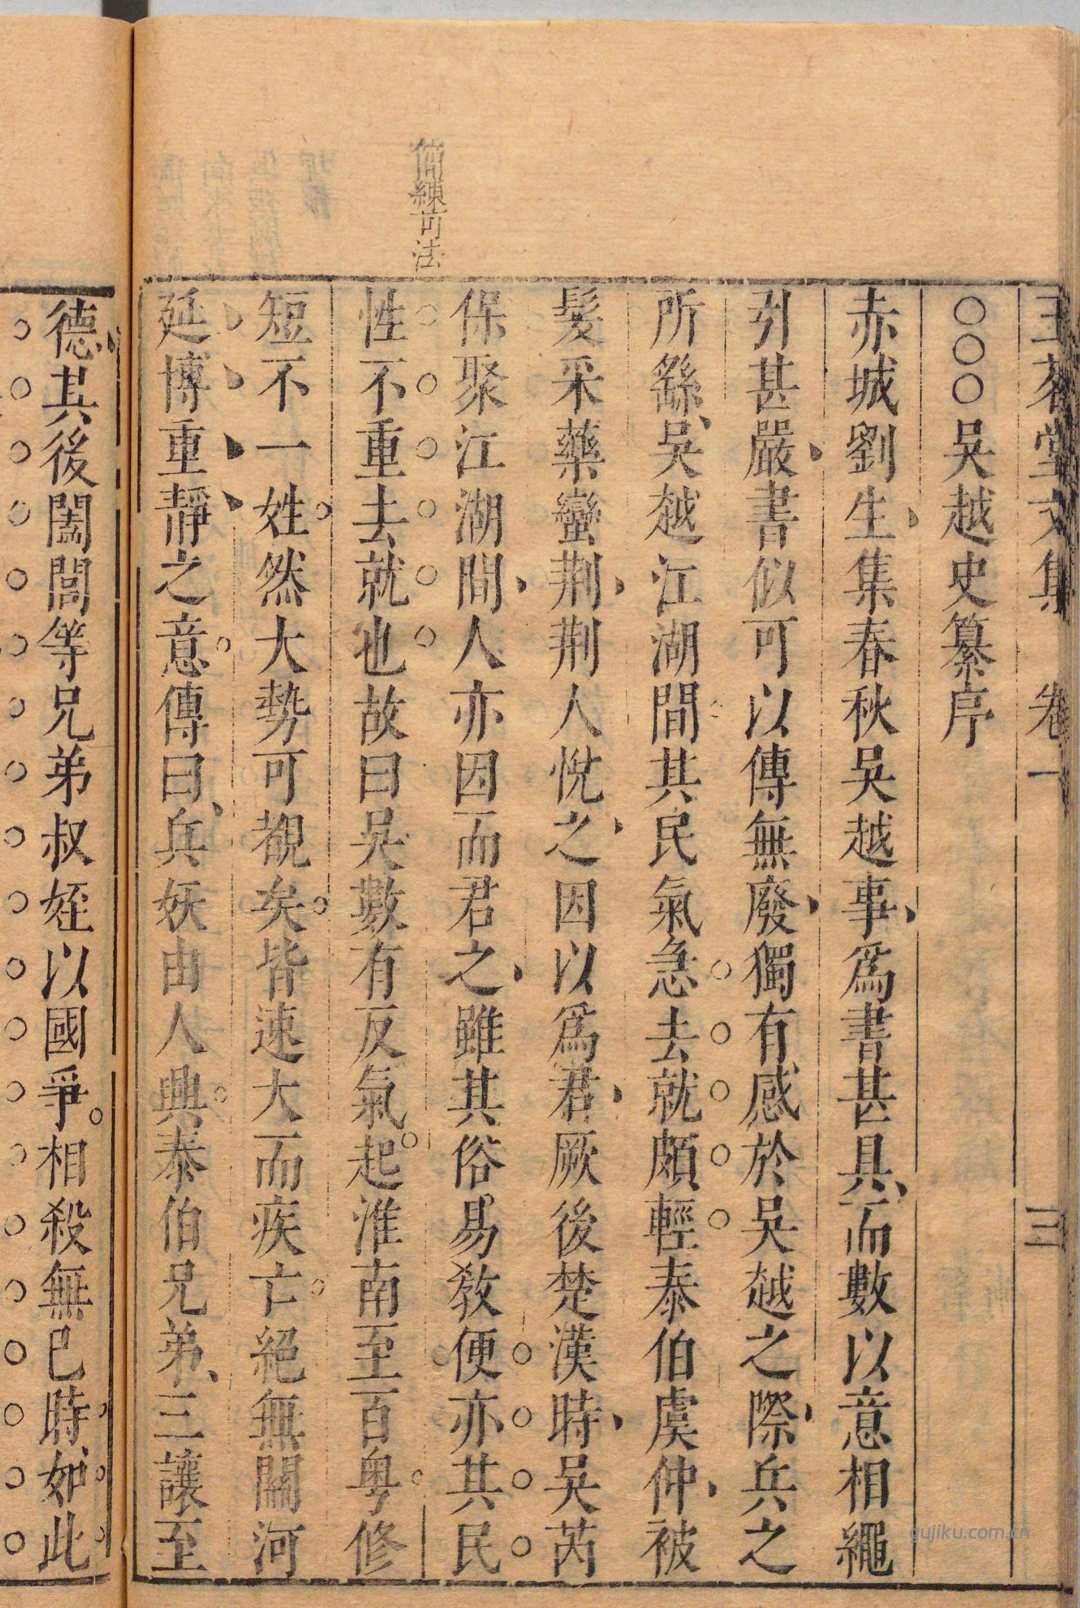 玉茗堂文集　卷一　三
○○○吳越史纂序
赤城劉生集春秋吳越事爲書甚具而數以意相繩
引甚嚴書似可以傳無廢獨有感於吳越之際兵之
所繇吳越江湖間其民氣急去就頗輕泰伯虞仲被
髮采藥蠻荆荆人悅之因以爲君厥後楚漢時吳芮
保聚江湖間人亦因而君之雖其俗易敎便亦其民
性不重去就也故曰吳數有反氣起淮南至百粤修
短不一姓然大勢可覩矣皆速大而疾亡絕無關河
延博重靜之意傳曰兵妖由人興泰伯兄弟三讓至
德其後闔閭等兄弟叔姪以國爭相殺無已時如此
簡練可法
gujiku.com.cn